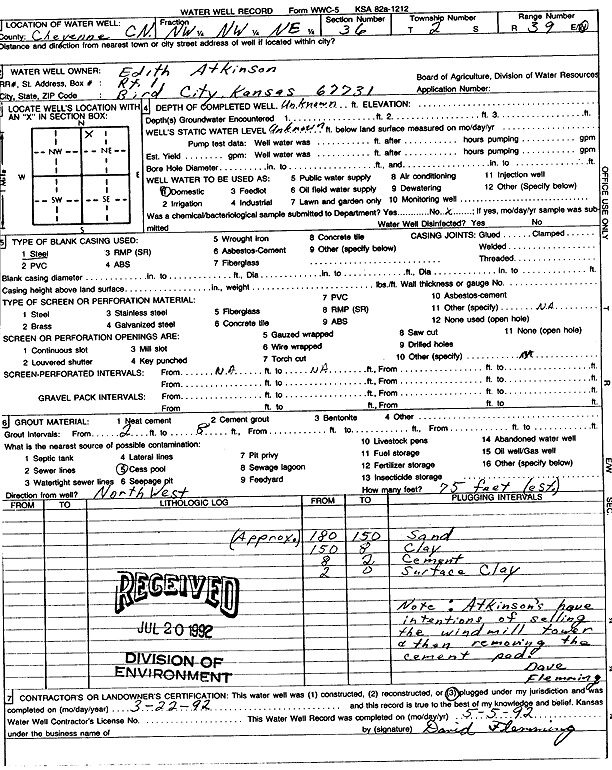 WATER WELL RECORD Form WWC-5 KSA 82a-1212
1 LOCATION OF WATER WELL: Fraction Section Number Township Number Range Number
County: Cheyenne CN. NW ¼ NW ¼ NE ¼ 36 T 2 S R 39 E/W
Distance and direction from nearest town or city street address of well if located within city?
2 WATER WELL OWNER: Edith Atkinson
RR#, St. Address, Box # : Rt. 1 Board of Agriculture, Division of Water Resources
City, State, ZIP Code : Bird City, Kansas 67731 Application Number:
3 LOCATE WELL'S LOCATION WITH AN "X" IN SECTION BOX:
N
X
NW NE
W E
SW SE
S
1 Mile
4 DEPTH OF COMPLETED WELL. Unknown ft. ELEVATION:
Depth(s) Groundwater Encountered 1. ft. 2. ft. 3. ft.
WELL'S STATIC WATER LEVEL Unknown ft. below land surface measured on mo/day/yr
Pump test data: Well water was ft. after hours pumping gpm
Est. Yield gpm: Well water was ft. after hours pumping gpm
Bore Hole Diameter in. to ft., and in. to ft.
WELL WATER TO BE USED AS: 5 Public water supply 8 Air conditioning 11 Injection well
1 Domestic 3 Feedlot 6 Oil field water supply 9 Dewatering 12 Other (Specify below)
2 Irrigation 4 Industrial 7 Lawn and garden only 10 Monitoring well
Was a chemical/bacteriological sample submitted to Department? Yes No X ; If yes, mo/day/yr sample was sub-
mitted Water Well Disinfected? Yes No
OFFICE USE ONLY
T
R
E/W
SEC.
5 TYPE OF BLANK CASING USED: 5 Wrought iron 8 Concrete tile CASING JOINTS: Glued Clamped
1 Steel 3 RMP (SR) 6 Asbestos-Cement 9 Other (specify below) Welded
2 PVC 4 ABS 7 Fiberglass Threaded
Blank casing diameter in. to ft., Dia in. to ft., Dia in. to ft.
Casing height above land surface in., weight lbs./ft. Wall thickness or gauge No.
TYPE OF SCREEN OR PERFORATION MATERIAL: 7 PVC 10 Asbestos-cement
1 Steel 3 Stainless steel 5 Fiberglass 8 RMP (SR) 11 Other (specify) NA
2 Brass 4 Galvanized steel 6 Concrete tile 9 ABS 12 None used (open hole)
SCREEN OR PERFORATION OPENINGS ARE: 5 Gauzed wrapped 8 Saw cut 11 None (open hole)
1 Continuous slot 3 Mill slot 6 Wire wrapped 9 Drilled holes
2 Louvered shutter 4 Key punched 7 Torch cut 10 Other (specify) NA
SCREEN-PERFORATED INTERVALS: From NA ft. to NA ft., From ft. to ft.
From ft. to ft., From ft. to ft.
GRAVEL PACK INTERVALS: From ft. to ft., From ft. to ft.
From ft. to ft., From ft. to ft.
6 GROUT MATERIAL: 1 Neat cement 2 Cement grout 3 Bentonite 4 Other
Grout Intervals: From 2 ft. to 8 ft., From ft. to ft., From ft. to ft.
What is the nearest source of possible contamination: 10 Livestock pens 14 Abandoned water well
1 Septic tank 4 Lateral lines 7 Pit privy 11 Fuel storage 15 Oil well/Gas well
2 Sewer lines 5 Cess pool 8 Sewage lagoon 12 Fertilizer storage 16 Other (specify below)
3 Watertight sewer lines 6 Seepage pit 9 Feedyard 13 Insecticide storage
Direction from well? North West How many feet? 75 feet (est.)
FROM TO LITHOLOGIC LOG FROM TO PLUGGING INTERVALS
(Approx.) 180 150 Sand
150 8 Clay
8 2 Cement
2 0 Surface Clay
RECEIVED
JUL 20 1992
DIVISION OF
ENVIRONMENT
Note: Atkinson's have
intentions of selling
the windmill tower
& then removing the
cement pad.
Dave
Flemming
7 CONTRACTOR'S OR LANDOWNER'S CERTIFICATION: This water well was (1) constructed, (2) reconstructed, or (3) plugged under my jurisdiction and was
completed on (mo/day/year) 3-22-92 and this record is true to the best of my knowledge and belief. Kansas
Water Well Contractor's License No. This Water Well Record was completed on (mo/day/yr) 5-5-92
under the business name of by (signature) David Flemming